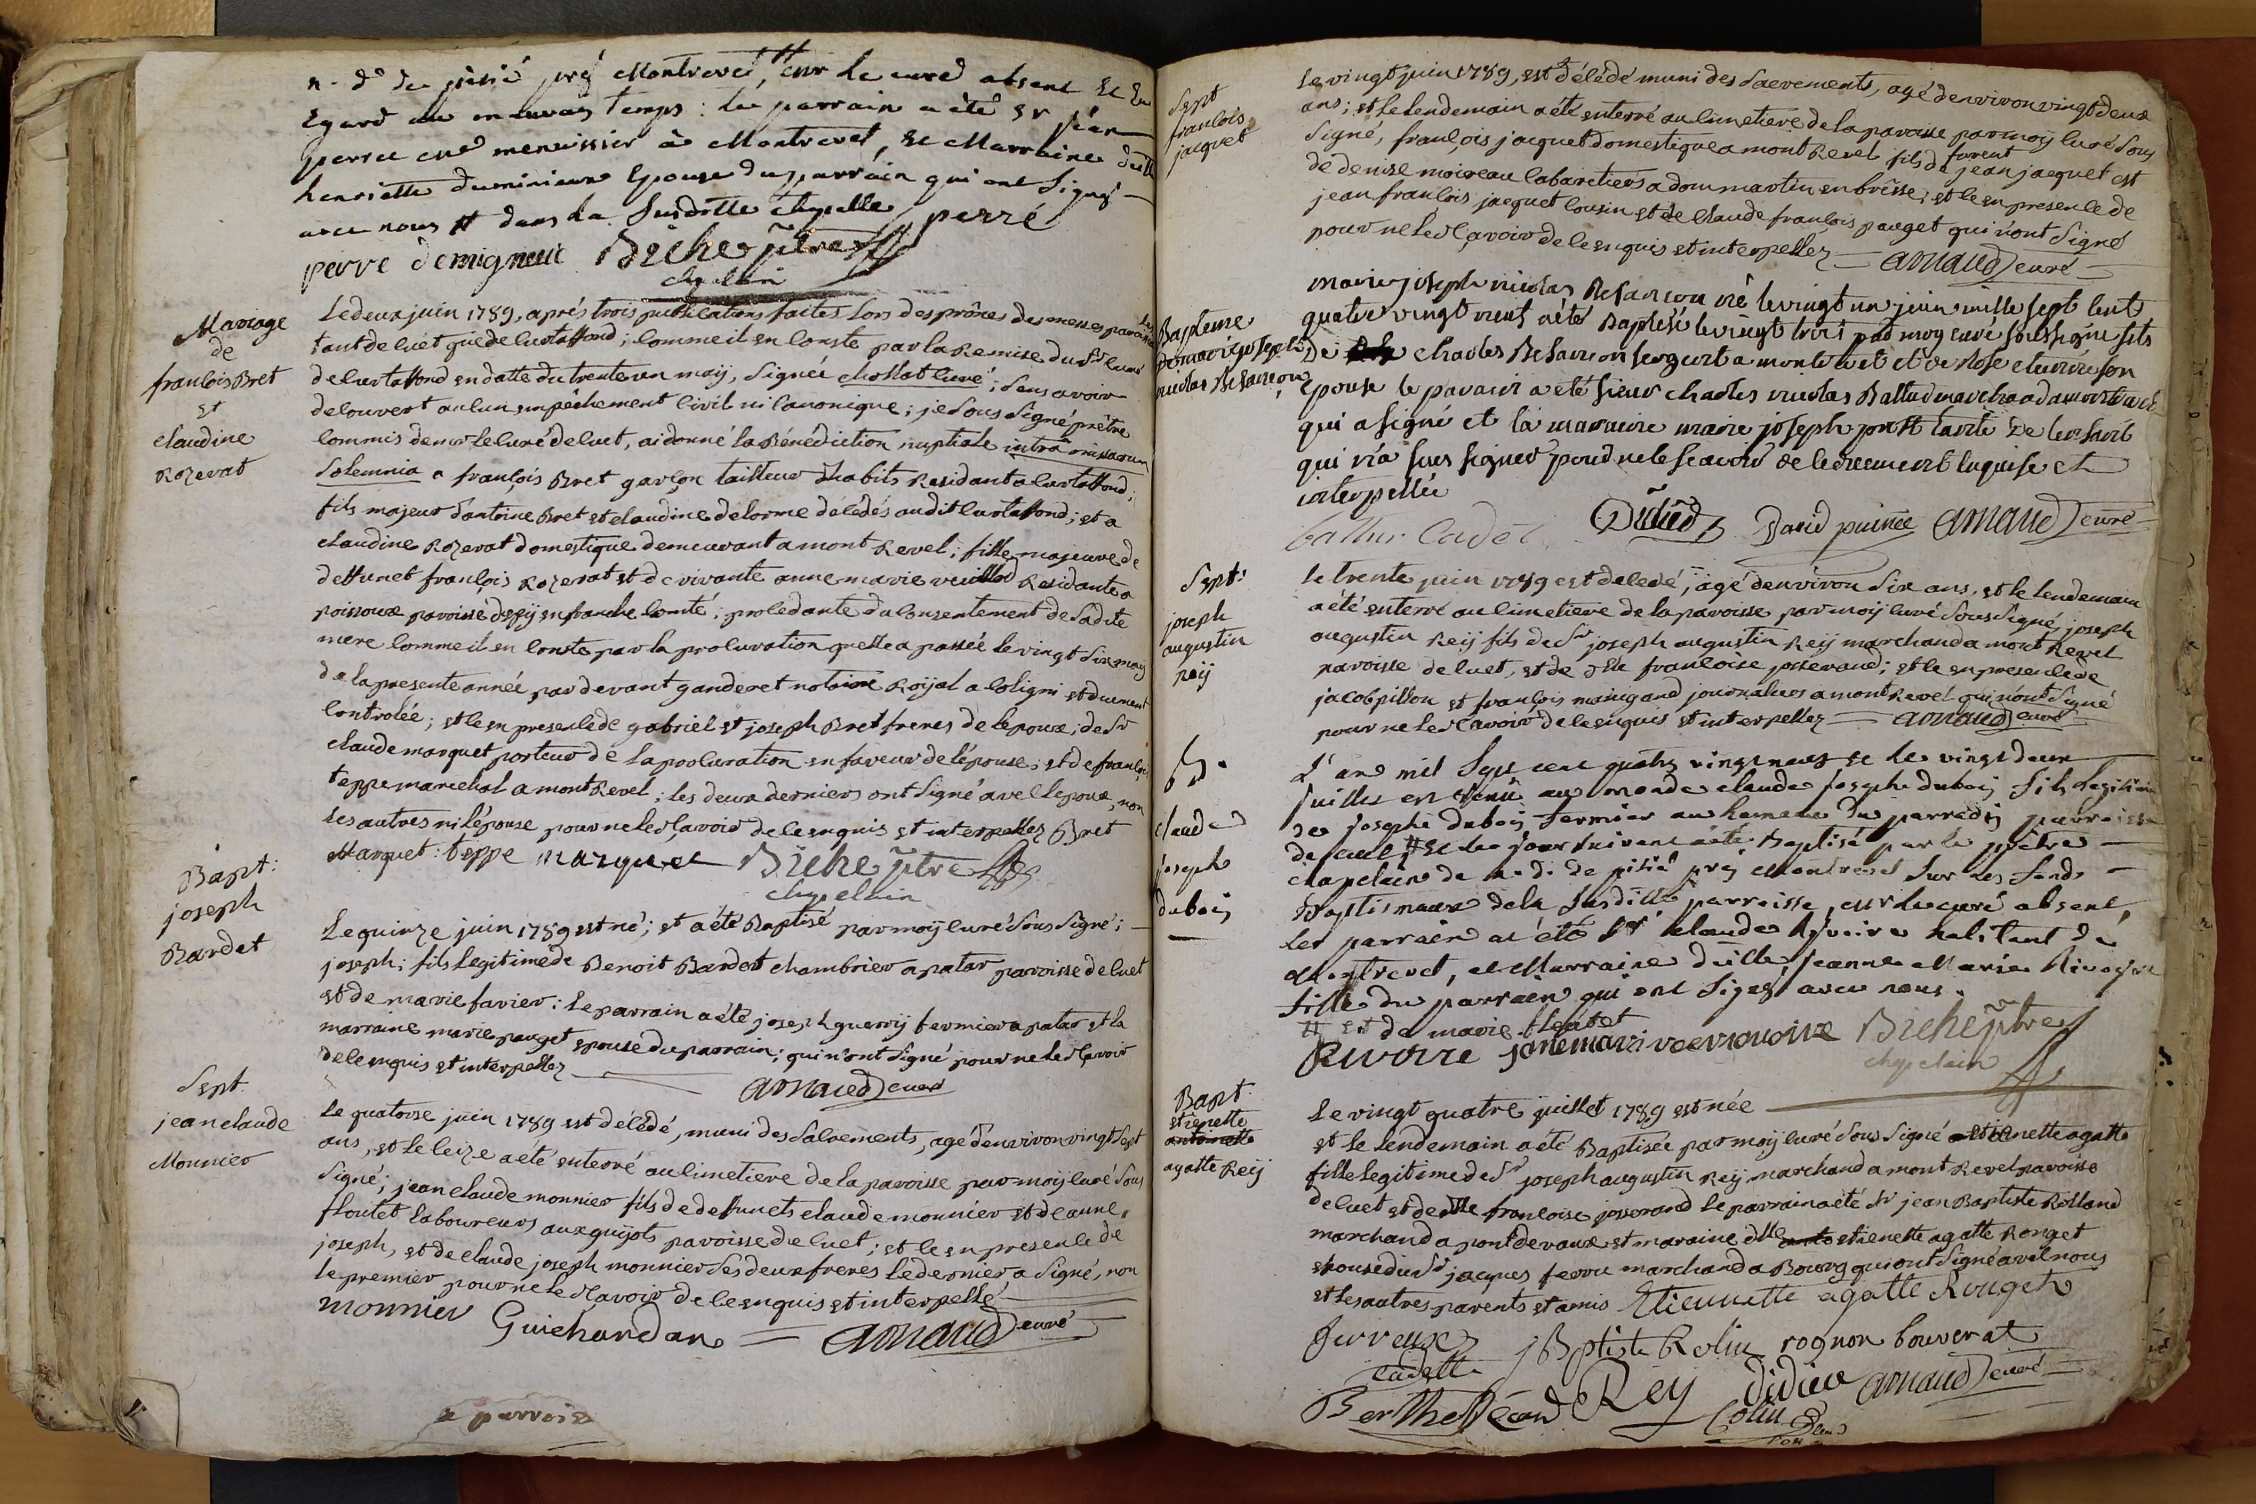 n. d. de pitié prés Montrevel, Mr le curé absent et eu
Egard au mauvais temps : le parrain a été sr jéan
perrée cne menuissier à Montrevel, et Marraine delle
henriette duminieux Epouse du parrain qui ont signé
avec nous # dans la susditte chapelle perré
perre demigneux Biche ptre
chapelain
Mariage
de
francois Bret
et
claudine
Rozerat
Le deux juin 1789, aprés trois publications faites Lors des prônes des messes paroissiales
tant de cuèt que de curtaffond ; comme il en conste par la Remise du sr curé
de curtaffond en datte du trente un maÿ, signée chossat curé ; sans avoir
découvert aucun empêchement civil ni canonique ; je sous signé prêtre
commis de mr le curé de cuet, ai donné la Bénédiction nuptiale intrà missarum
solemnia a françois Bret garçon tailleur d'habits Residant a curtaffond ;
fils majeur d'antoine Bret et claudine delorme décédés audit curtaffond ; et a
claudine Rozerat domestique demeurant a mont Revel ; fille majeure de
deffunct françois Rozerat et de vivante anne marie veuillod Residante a
poissoux paroisse d'epÿ en franche comté ; procedante du consentement de sadite
mere comme il en conste par la procuration quelle a passée le vingt six maÿ
de la presente année par devant ganderet notaire Roÿal a coligni et dument
controlée ; et ce en presence de gabriel et joseph Bret freres de l'epoux ; de sr
claude marquet porteur de la procuration en faveur de l'épouse ; et de françois
teppe marechal a mont Revel ; les deux derniers ont signé avec l'epoux, non
les autres ni l'épouse pour ne le scavoir de ce enquis et interpellez Bret
Marquet : teppe marquet Biche ptre
chapelain
Bapt:
joseph
Bardet
Le quinze juin 1789 est né ; et a été Baptisé par moÿ curé sous signé ;
joseph ; fils Legitime de Benoit Bardet chambrier a patar paroisse de cuet
et de marie favier : Le parrain a été joseph guerrÿ fermier a patar et la
marraine marie pauget epouse du parrain ; qui n'ont signé pour ne le scavoir
de ce enquis et interpellez
arnaud curé
Sept.
jean claude
Monnier
Le quatorse juin 1789 est décédé, muni des sacrements, agé d'environ vingt sept
ans, et le seize a été enterré au cimetiere de la paroisse par moÿ curé sous
signé ; jean claude monnier fils de deffuncts claude monnier et de anne
floutet Laboureurs aux guÿots paroisse de cuet ; et ce en presence de
joseph, et de claude joseph monnier ses deux freres le dernier a signé, non
le premier pour ne le scavoir de ce enquis et interpellé
monnier Guichardan arnaud curé
a parrois
Sept
francois
jacquet
Le vingt juin 1789, est décédé muni des sacrements, agé d'environ vingt deux
ans ; et le lendemain a été enterré au cimetiere de la paroisse par moÿ curé sous
signé, françois jacquet domestique a mont Revel fils de furent jean jacquet est
de denise moireau cabaretiers a dommartin en brêsse ; et ce en presence de
jean françois jacquet cousin et de claude françois pauget qui n'ont signé
pour ne le scavoir de ce enquis et interpellez arnaud curé
Bapteme
de marie joseph
nicolas Besancon
marie joseph nicolas Besancon né le vingt un juin mille sept cent
quatre vingt neuf a été Baptésé le vingt trois par moy curé soussigné fils
de charles Besancon sergent a montrevel et de Rose son
epouse le parain a été sieur charles nicolas Ballud marchand a montrevel
qui a signé et la maraine marie joseph
qui n'a sus signer pour ne le scavoir de ce enquise et
interpellée
ballud Cadet Didier David puinée arnaud curé
Sept:
joseph
augustin
reÿ
Le trente juin 1789 est decedé, agé d'environ six ans, et le lendemain
a été enterré au cimetiere de la paroisse par moÿ curé sous signé, joseph
augustin Reÿ fils de sr joseph augustin Reÿ marchand a mont Revel
paroisse de cuet, et de dlle francoise josserand ; et ce en presence de
jacob pillon et françois maingand journaliers a mont Revel qui n'ont signé
pour ne le scavoir de ce enquis et interpellez arnaud curé
B.
claude
joseph
dubois
L'an mil sept cent quatre vingt neuf et le vingt deux
juillet est venû au monde claude joseph dubois fils legitime
de josephe dubois fermier au hameau du parradis parroisse
de cuet # et le jour suivant a été Baptisé par le prêtre
chapelain de n. d. de pitié prés Montrevel sur les fonds
Baptismaux de la susditte parroisse, mr le curé absent,
le parrain a été sr claude Rivoire habitant de
Montrevel, et Marraine delle jeanne Marie Rivoire
fille du parrain qui ont signés avec nous.
# Et de marie floutet
Rivoire Biche ptre
chapelain
Bapt.
etienette
antoinette
agatte Reÿ
Le vingt quatre juillet 1789 est née
et le lendemain a été Baptisée par moÿ curé sous signé etienette agatte
fille legitime de sr joseph augustin Reÿ marchand a mont Revel paroisse
de cuet et de dlle françoise josserand Le parrain a été sr jean Baptiste Rolland
marchand a pont de vaux et maraine dlle etienette agatte Rouget
epouse du sr jacques marchand a Bourg qui ont signé avec nous
et les autres parents et amis Etiennette agatte Rouget
cadette J Bptiste Rolin rognon bouverat
Berthe Rey Didier arnaud curé
Colin